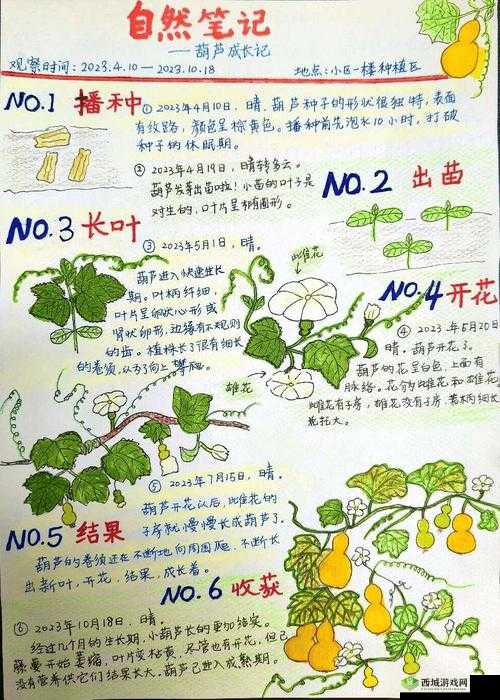 自然笔记
——葫芦成长记
观察时间：2023.4.10—2023.10.18
地点：小区一楼种植区
NO.1 播种
① 2023年4月10日，晴。葫芦种子的形状很独特，表面
有纹路，颜色呈棕黄色。播种前先泡水10小时，打破
种子的休眠期。
② 2023年4月19日，晴转多云。
葫芦发芽出苗啦！小苗的叶子是
对生的，叶片呈卵圆形。
NO.2 出苗
NO.3 长叶
③ 2023年5月1日，晴。
葫芦进入快速生长
期。叶柄纤细，
叶片呈卵状心形或
肾状卵形，边缘有不规则
的齿。植株长了很有细长
的卷须，以利向上攀爬。
雌花
雄花
NO.4 开花
④ 2023年5月20日
晴。葫芦开花了。
葫芦的花呈白色，上面有
脉络。花分雌花和雄花
雌花有子房，雄花没有子房，花柄细长
NO.5 结果
⑤ 2023年7月15日，晴。
葫芦开花以后，雌花的
子房就慢慢长成葫芦了。
葫芦的卷须还在不断地向周围爬，不断长
出新叶，开花，结果，成长着。
NO.6 收获
⑥ 2023年10月18日，晴。
经过几个月的生长期，小葫芦长的更加结实。
藤蔓开始萎缩，叶片变枯黄，尽管也有开花，但已
没有营养供它们结果长大。葫芦已进入成熟期。
西城游戏网